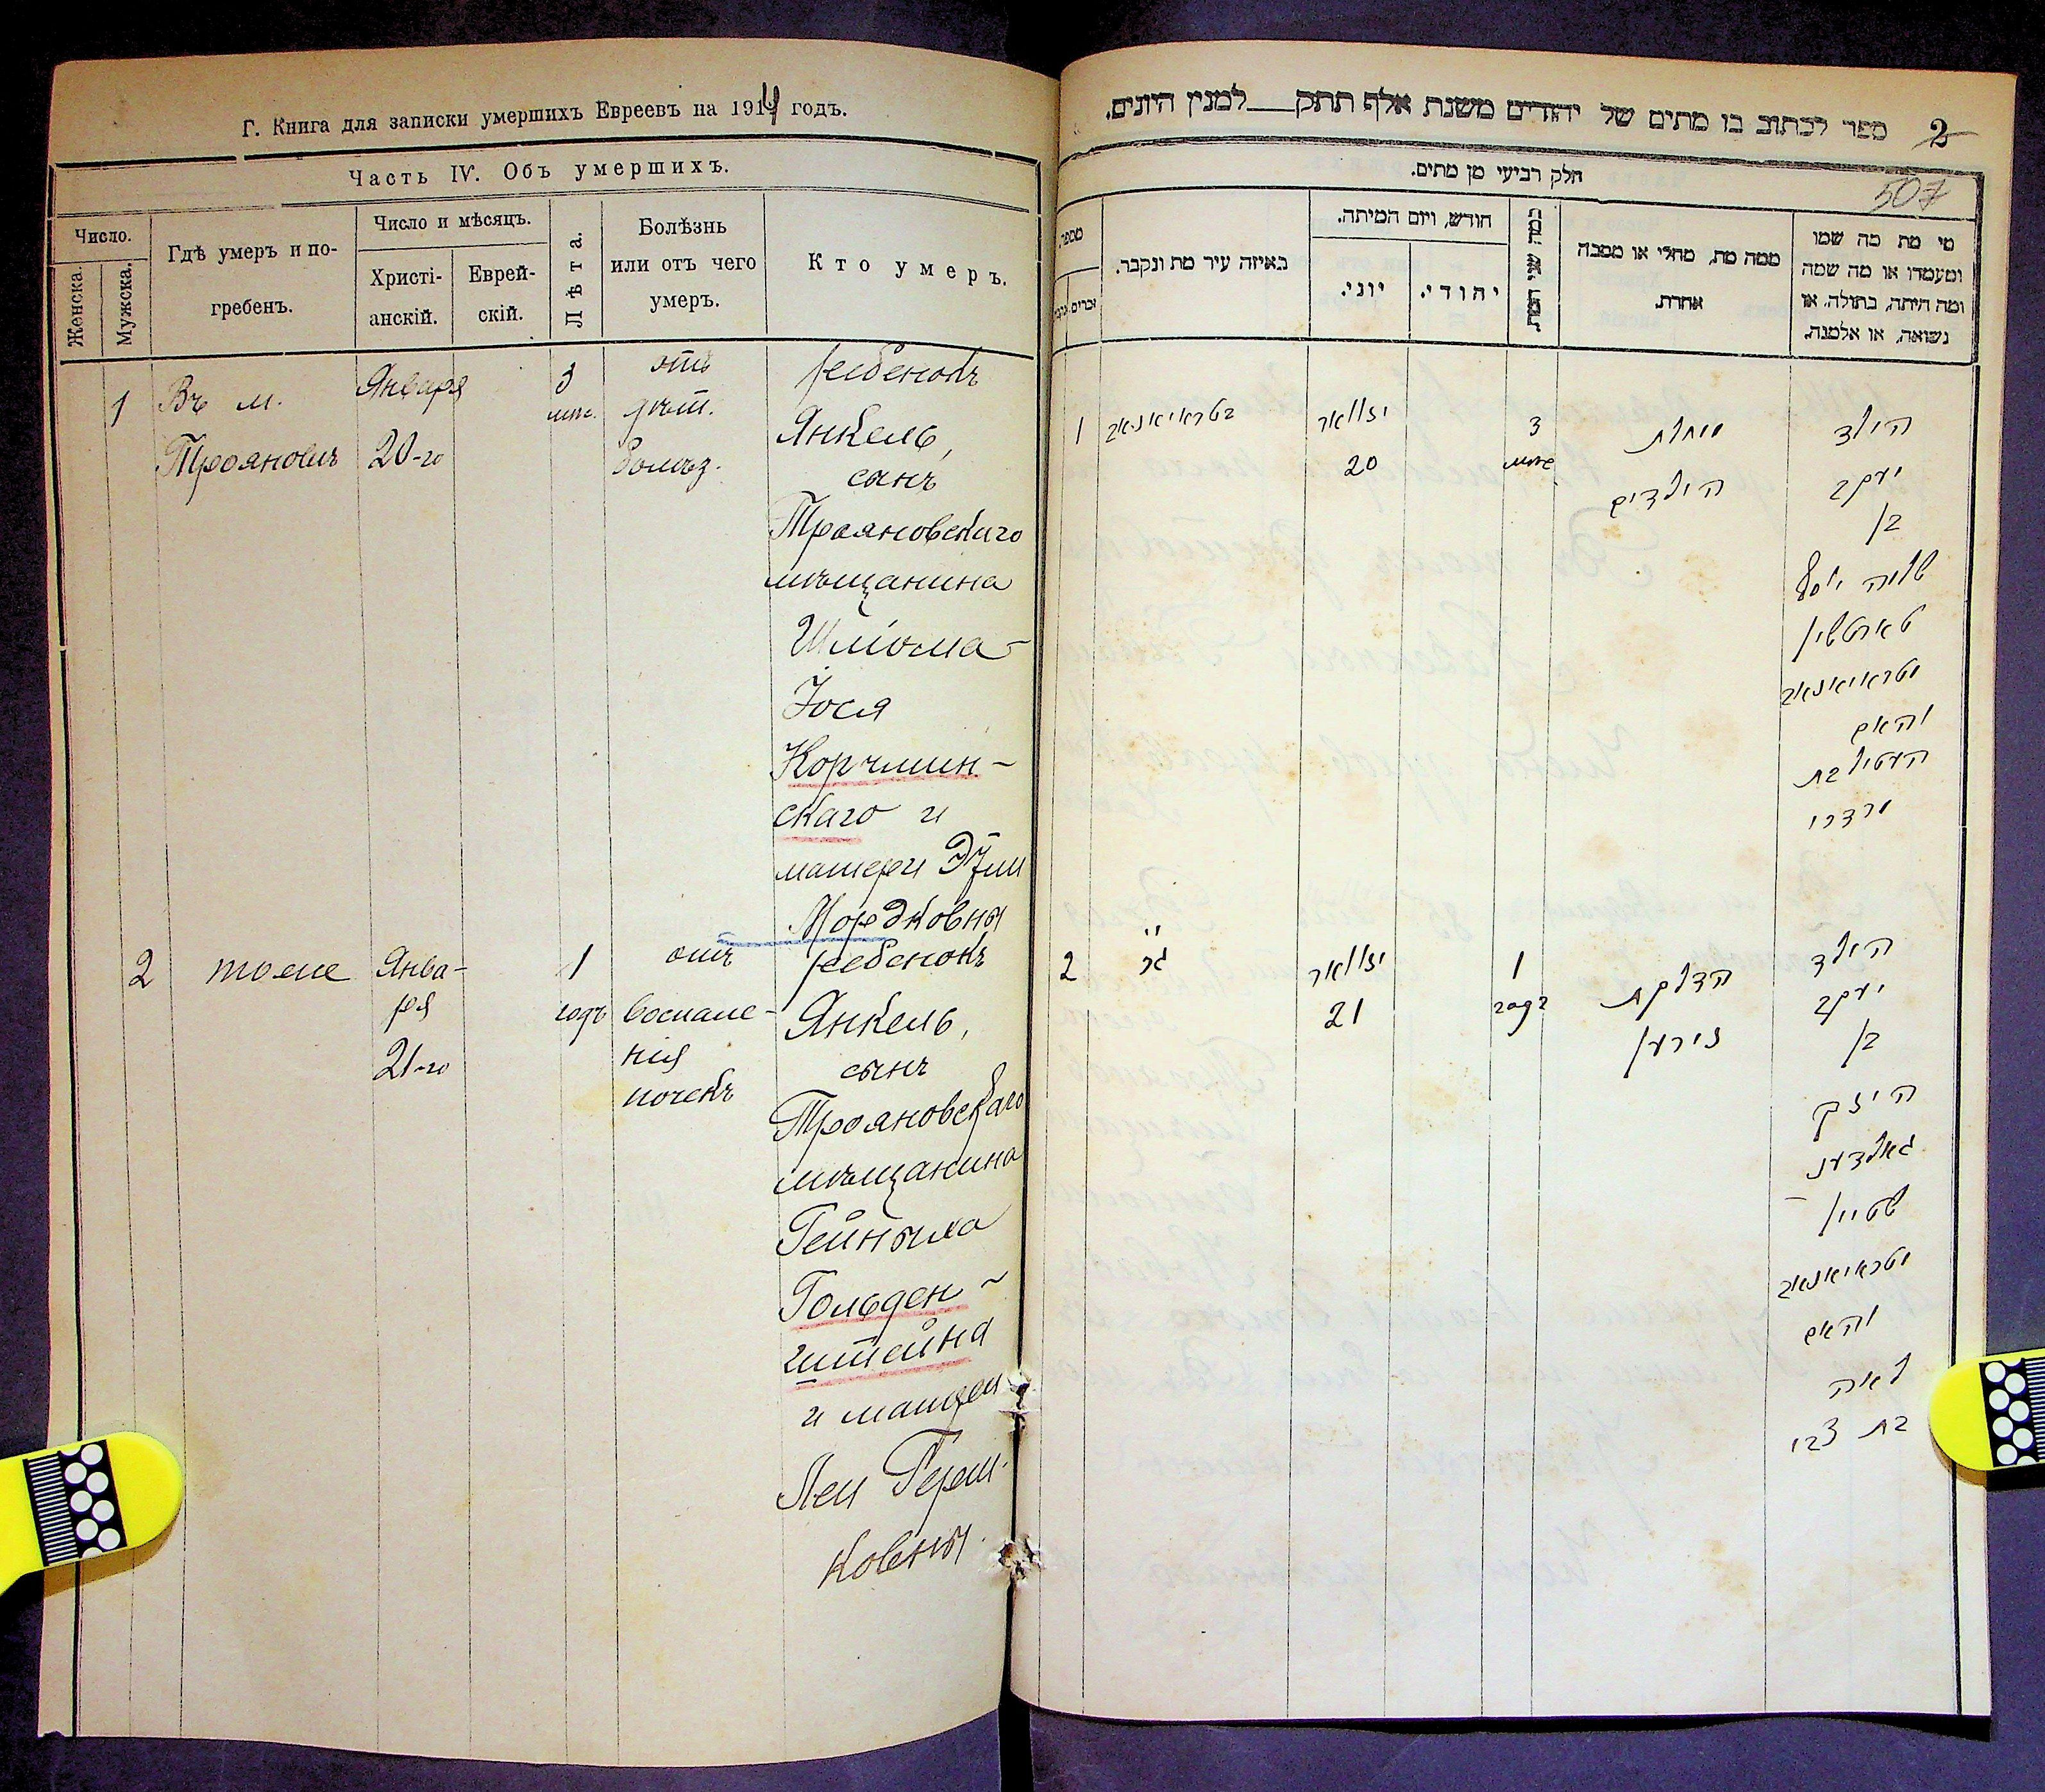 Г. Книга для записки умершихъ Евреевъ на 1914 годъ.
Часть IV. Объ умершихъ.
Число.
Женска.
Мужска.
Гдѣ умеръ и по-
гребенъ.
Число и мѣсяцъ.
Христі-
анскій.
Еврей-
скій.
Лѣта.
Болѣзнь
или отъ чего
умеръ.
Кто умеръ.
1
Въ м.
Трояновъ
Января
20-го
3
мѣс.
отъ
дѣт.
болѣз.
ребенокъ
Янкель,
сынъ
Трояновскаго
мѣщанина
Шліома-
Іося
Корчмин-
скаго и
матери Эти
Мордковны
2
тоже
Янва-
ря
21-го
1
годъ
отъ
воспале-
нія
почекъ
ребенокъ
Янкель,
сынъ
Трояновскаго
мѣщанина
Гейныха
Гольден-
штейна
и матери
Леи Герш-
ковны.
ספר לכתוב בו מתים של יהודים משנת אלף תתק___למנין היונים.
2
507
חלק רביעי מן מתים.
מספר.
זכרים
באיזה עיר מת ונקבר.
חודש, ויום המיתה.
יוני.
יהודי.
כמה שני המת.
ממה מת, מחלי או מסבה
אחרת.
מי מת מה שמו
ומעמדו או מה שמה
ומה היתה, בתולה, או
נשואה, או אלמנה.
1
בטראיאנאוו
ינואר
20
3
мѣс
מחלת
הילדים
הילד
יעקב
בן
שלמה יוסף
מטראיאנאוו
והאם
העטיל בת
מרדכי
2
גם
ינואר
21
1
годъ
הדלקת
נירען
הילד
יעקב
בן
היינך
גאלדענ
שטיין
מטראיאנאוו
והאם
לאה
בת צבי